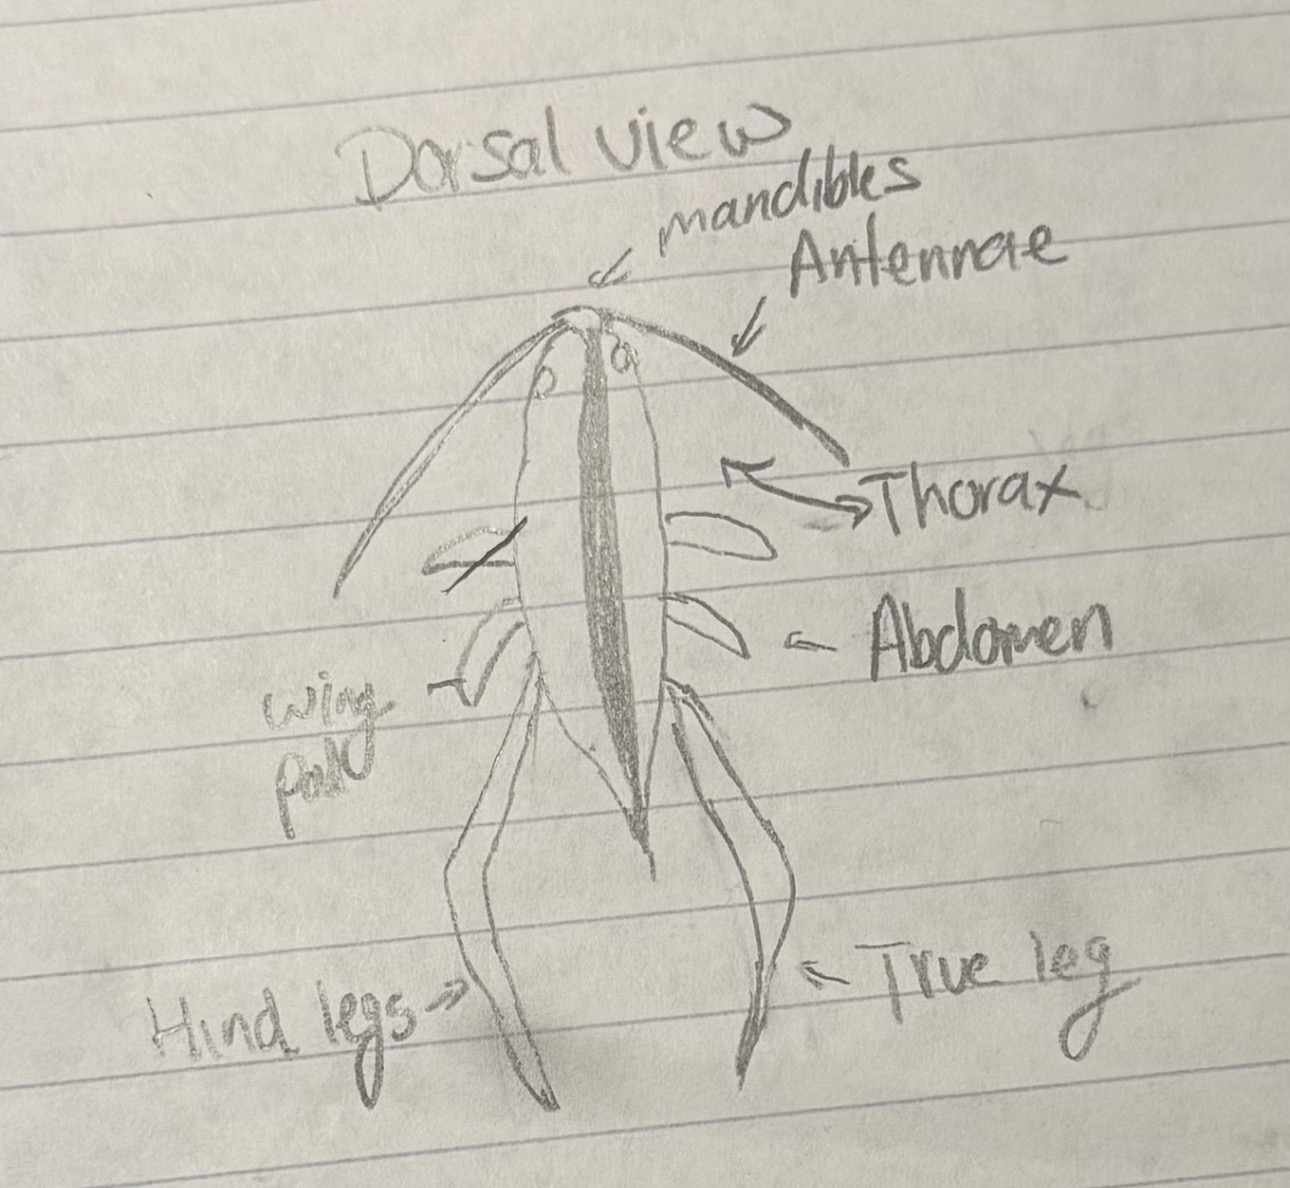 Dorsal view
mandibles
Antennae
Thorax
Abdomen
wing
pad
True leg
Hind legs